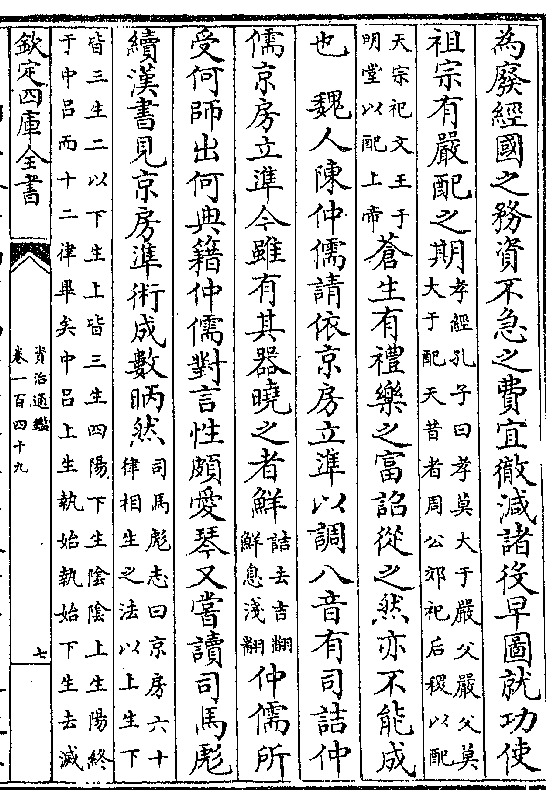 為廢經國之務資不急之費宜徹減諸役早圖就功使
祖宗有嚴配之期
孝經孔子曰孝莫大于嚴父嚴父莫
大于配天昔者周公郊祀后稷以配
天宗祀文王于
明堂以配上帝
蒼生有禮樂之富詔從之然亦不能成
也　魏人陳仲儒請依京房立準以調八音有司詰仲
儒京房立準今雖有其器曉之者鮮
詰去吉翻
鮮息淺翻
仲儒所
受何師出何典籍仲儒對言性頗愛琴又嘗讀司馬彪
續漢書見京房準術成數昞然
司馬彪志曰京房六十
律相生之法以上生下
皆三生二以下生上皆三生四陽下生陰陰上生陽終
于中呂而十二律畢矣中呂上生執始執始下生去滅
欽定四庫全書
資治通鑑
卷一百四十九
七